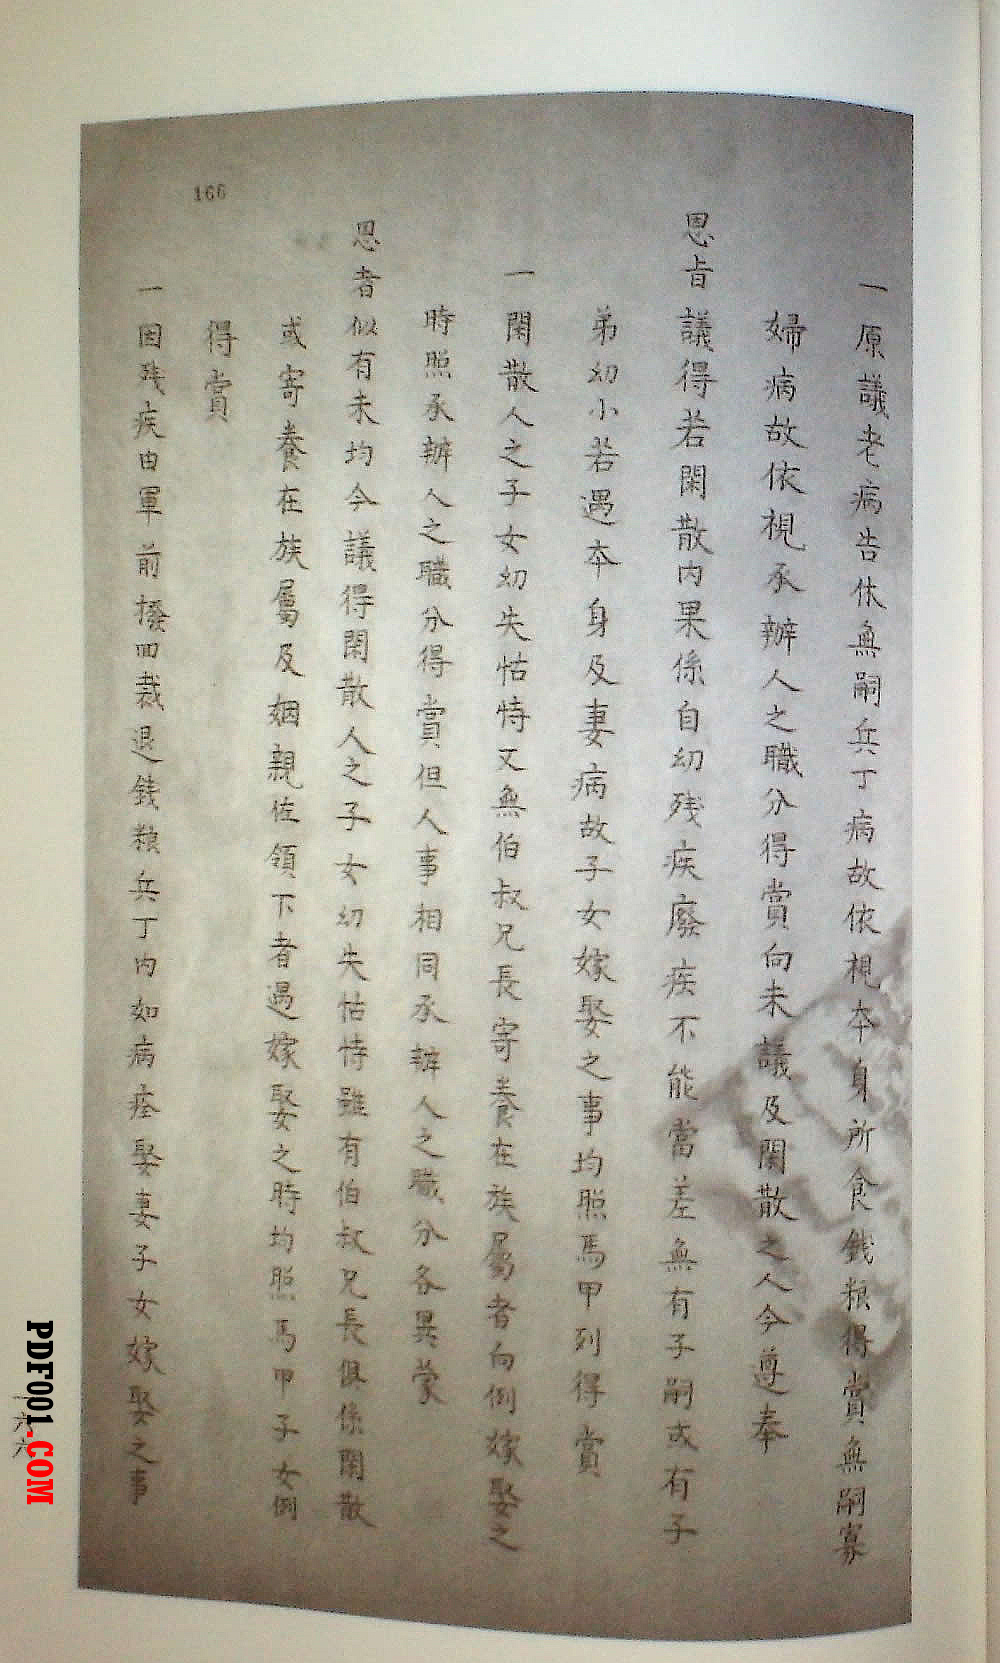 166
一原議老病告休無嗣兵丁病故依視本身所食錢粮得賞無嗣寡
婦病故依視承辦人之職分得賞向未議及閑散之人今遵奉
恩旨議得若閑散内果係自幼残疾廢疾不能當差無有子嗣或有子
弟幼小若遇本身及妻病故子女嫁娶之事均照馬甲列得賞
一閑散人之子女幼失怙恃又無伯叔兄長寄養在族屬者向例嫁娶之
時照承辦人之職分得賞但人事相同承辦人之職分各異蒙
恩者似有未均今議得閑散人之子女幼失怙恃雖有伯叔兄長俱係閑散
或寄養在族屬及姻親佐領下者遇嫁娶之時均照馬甲子女例
得賞
一因残疾由軍前撥回裁退錢粮兵丁内如病痊娶妻子女嫁娶之事
一六六
PDF001.COM